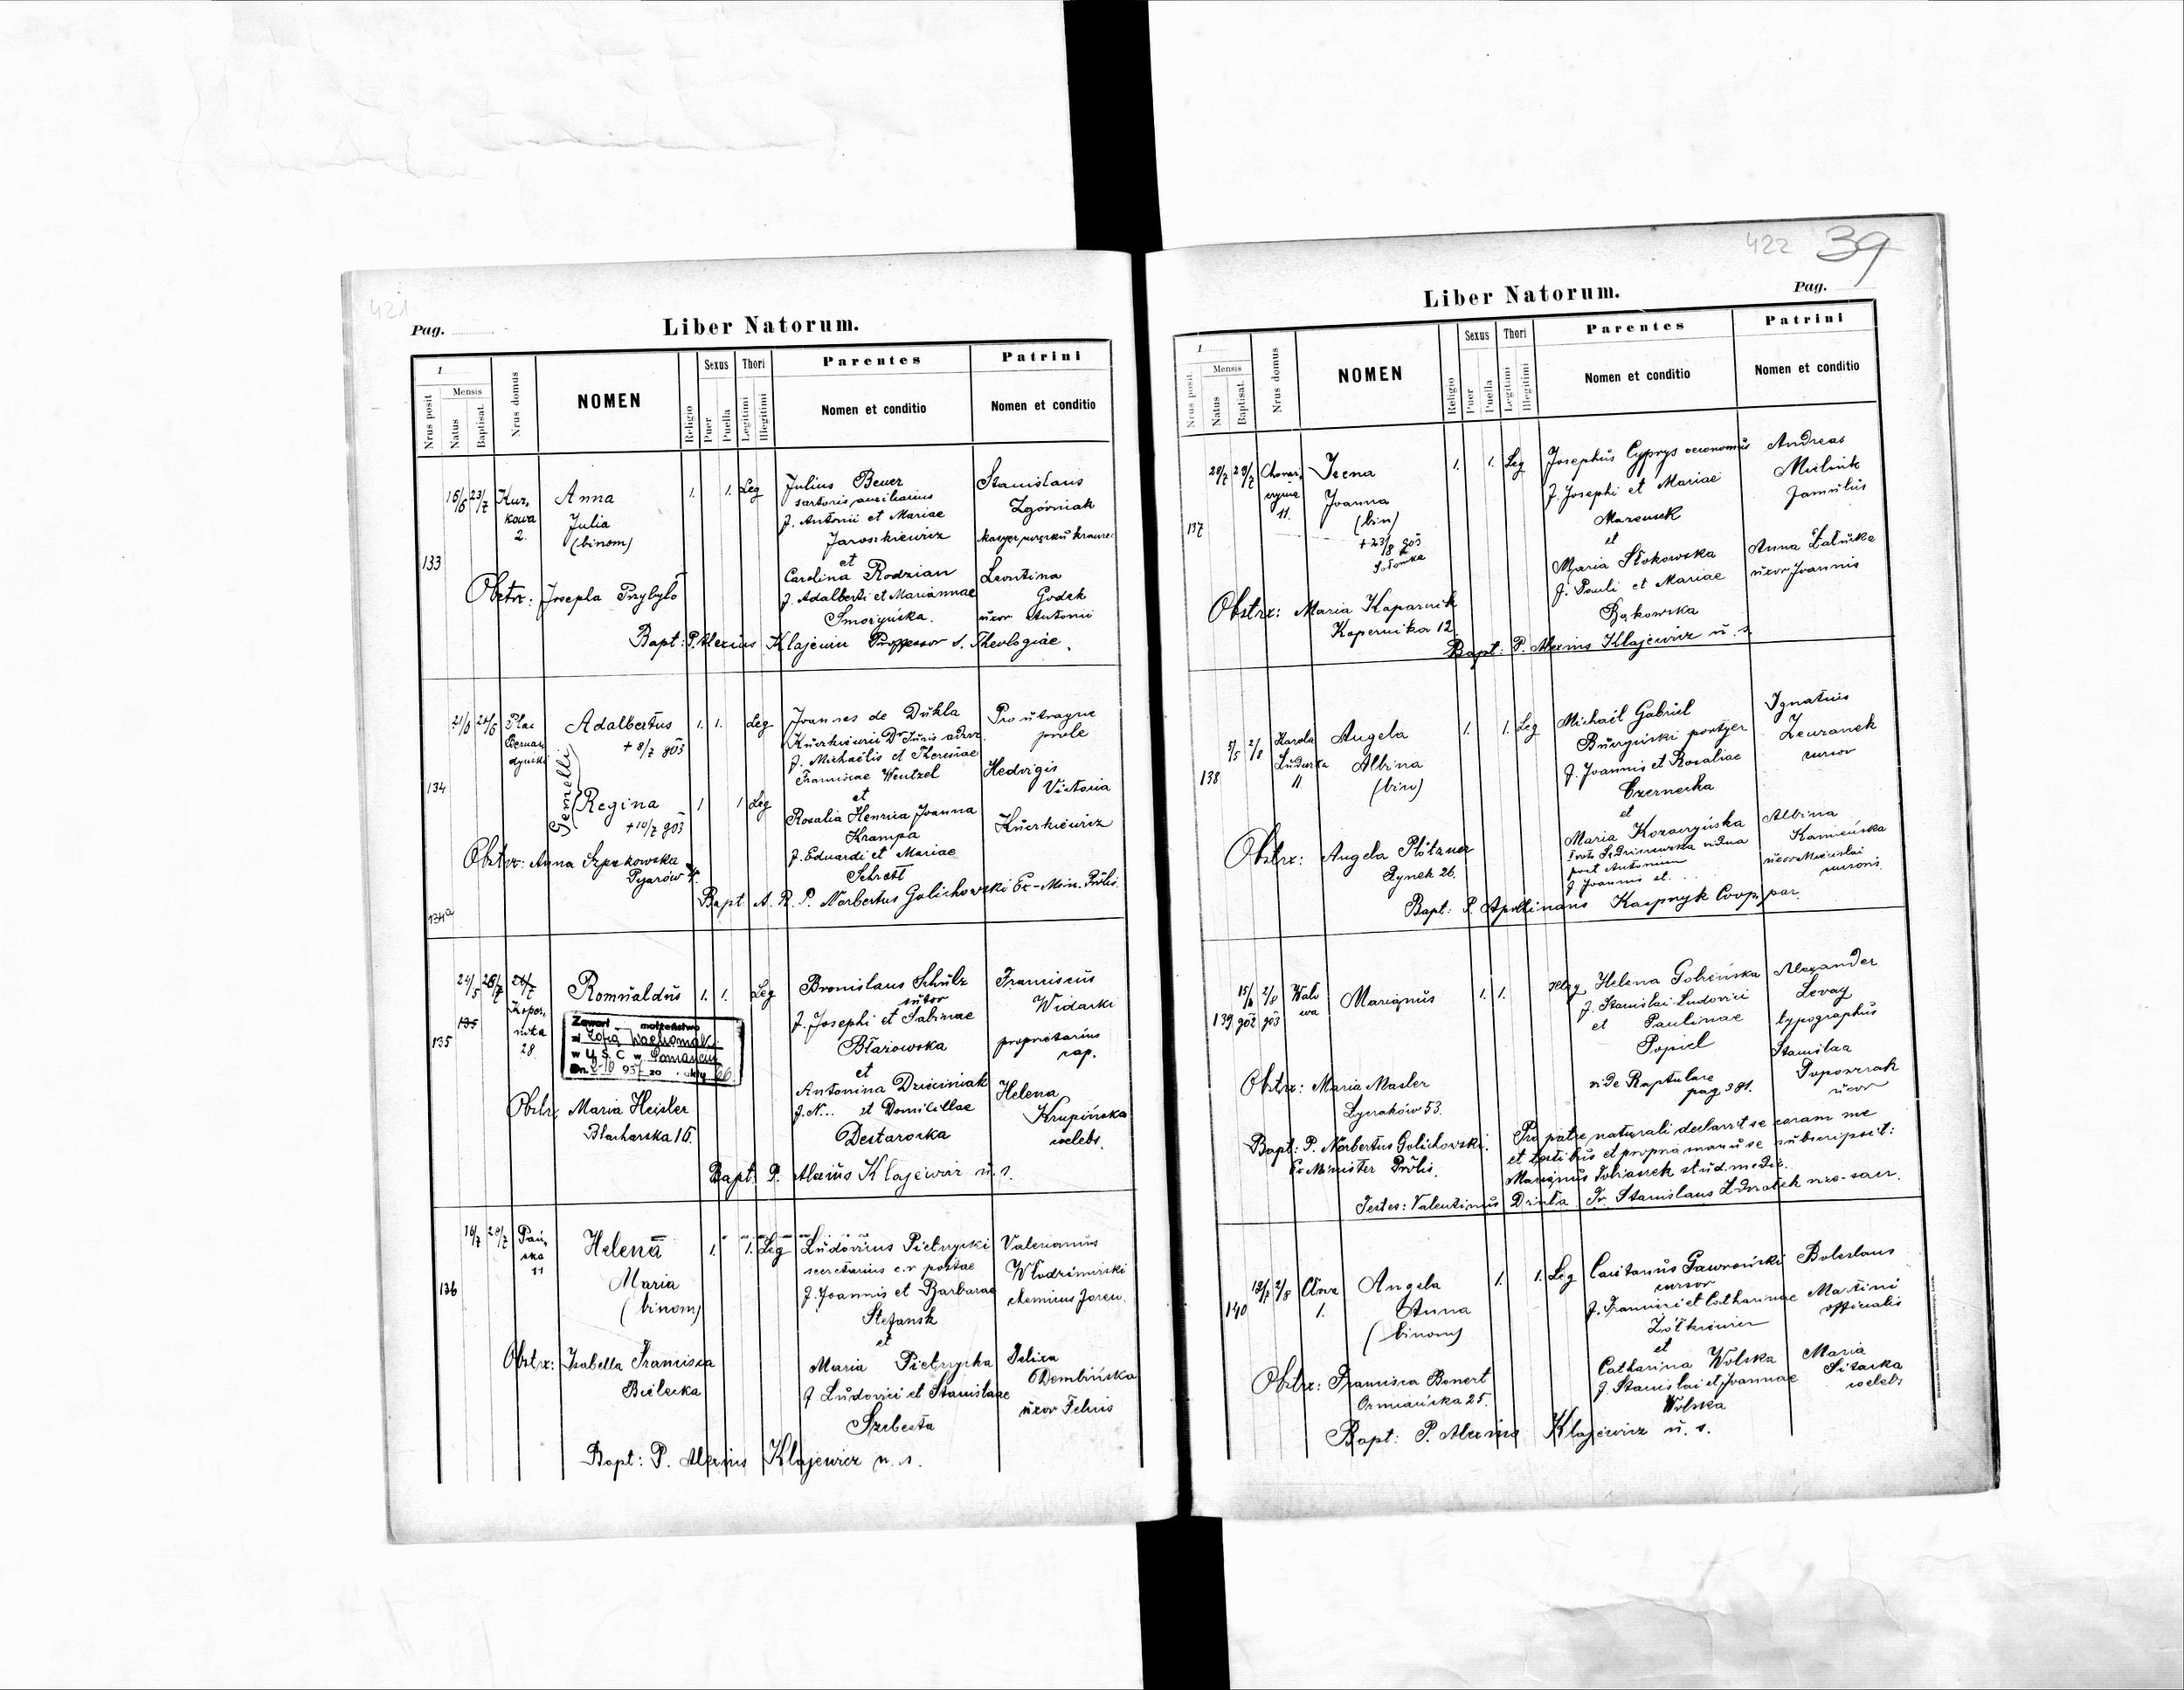 421
Pag.
Liber Natorum.
1
Mensis
Nrus posit
Natus
Baptisat.
Nrus domus
NOMEN
Religio
Sexus
Puer
Puella
Thori
Legitimi
Illegitimi
Parentes
Nomen et conditio
Patrini
Nomen et conditio
133
16/6 23/7
Kur,
kowa
2.
Anna
Julia
(binom)
1. 1. Leg
Julius Beuer
sartoris auxiliarius
f. Antonii et Mariae
Jaroszkiewicz
et
Carolina Rodzian
f. Adalberti et Mariannae
Smorzyńska.
Stanislaus
Zgórniak
Leontina
Godek
uxor Antonii
Obstrx: Josepha Przybyło
Bapt: P. Alexius Klajewicz Professor s. Theologiae.
134
21/6 24/6
Plac
Bernar
dyński
Gemelli
Adalbertus
+ 8/7 903
1. 1. Leg
Regina
+ 10/7 903
1 1 Leg
Joannes de Dukla
Kuerkiewicz Dr Juris advoc.
f. Michaelis et Theresiae
Franciscae Wentzel
et
Rosalia Henrica Joanna
Krampa
f. Eduardi et Mariae
Schrett
Pro utraque
prole
Hedvigis
Victoria
Kuerkiewicz
Obstrx: Anna Szpakowska
Pijarów
134a
Bapt. A. R. P. Norbertus Golichowski Ex-Min. Prolis.
135
24/5 26/7
135
Koper,
nika
28.
Romualdus
1. 1. Leg
Zawarł małżeństwo
z Zofią
w U S C w Poznaniu
Dn. 9-10 957 za akty
Bronislaus Schulz
sutor
f. Josephi et Sabinae
Błażowska
et
Antonina Dzieciniak
f. N... et Domicillae
Destarocka
Franciscus
Widacki
proprietarius
cap.
Helena
Krupińska
coelebs.
Obstr. Maria Heisler
Blacharska 16.
Bapt. P. Alexius Klajewicz u. s.
136
16/7 29/7
Pań,
ska
11
Helena
Maria
(binom)
1. 1. Leg
Ludovicus Pietrzycki
secretarius c. r. postae
f. Joannis et Barbarae
Stefansk
et
Maria Pietrzycka
f Ludovici et Stanislaae
Szebesta
Valerianus
Włodzimirski
chemicus foren.
Felixa
Dembińska
uxor Felicis
Obstrx: Isabella Francisca
Bielecka
Bapt: P. Alexius Klajewicz u. s.
422 39
Liber Natorum.
Pag.
1
Mensis
Nrus posit.
Natus
Baptisat.
Nrus domus
NOMEN
Religio
Sexus
Puer
Puella
Thori
Legitimi
Illegitimi
Parentes
Nomen et conditio
Patrini
Nomen et conditio
137
20/7 29/7
11.
Irena
Joanna
(bin)
+ 23/8 903
1. 1. Leg
Josephus Cyprys oeconomus
f. Josephi et Mariae
Marcusek
et
Maria Stokowska
f. Pauli et Mariae
Bąkowska
Andreas
Mielnik
famulus
Anna Załucka
uxor Joannis
Obstrx: Maria Kaparnik
Kopernika 12.
Bapt: P. Alexius Klajewicz u. s.
138
5/5 2/8
Karola
Ludwika
11.
Angela
Albina
(bin)
1. 1. Leg
Michaël Gabriel
Burzyński portyer
f. Joannis et Rosaliae
Czernecka
et
Maria Kozaczyńska
vidua
post Antonium
f. Joannis et ...
Ignatius
Zeuranek
cursor
Albina
Kamieńska
uxor Miecislai
cursoris.
Obstrx: Angela Plötzner
Rynek 26.
Bapt: P. Apollinaris Kacprzyk Coop. par.
139
15/4 2/8
902 903
Wało
wa
Marianus
1. 1. Illeg
Helena Gobińska
f. Stanislai Ludovici
et Paulinae
Popiel
vide Raptulare
pag. 381.
Alexander
Levay
typographus
Stanislaa
uxor
Obstrx: Maria Masler
Łyczaków 53.
Bapt: P. Norbertus Golichowski.
Ex Minister Prolis.
Pro patre naturali declaravit se coram me
et testibus et propria manu se subscripsit:
Marianus Tobiaszek stud. medic.
Testes: Valentinus Drinta Fr. Stanislaus Zdrołek vice-sacr.
140
12/7 2/8
1.
Angela
Anna
(binom)
1. 1. Leg
Caietanus Gawroński
cursor
f. Francisci et Catharinae
Żółkiewicz
et
Catharina Wolska
f. Stanislai et Joannae
Wolska
Boleslaus
Martini
officialis
Maria
Sitarka
coelebs
Obstrx: Francisca Bonert
Ormiańska 25.
Bapt: P. Alexius Klajewicz u. s.